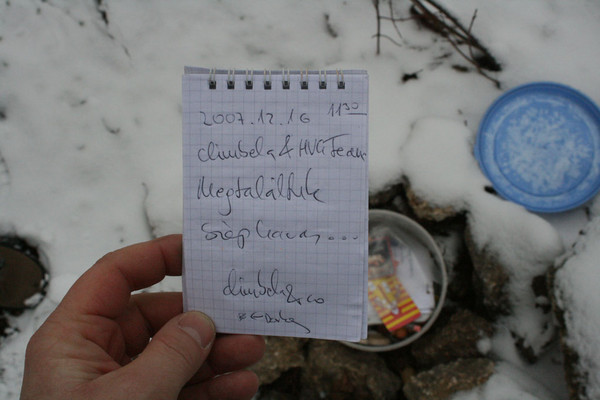 2007.12.16 11³⁰
dimbela & HVG Team
Megtaláltuk
Szép havas...
dimbela & co